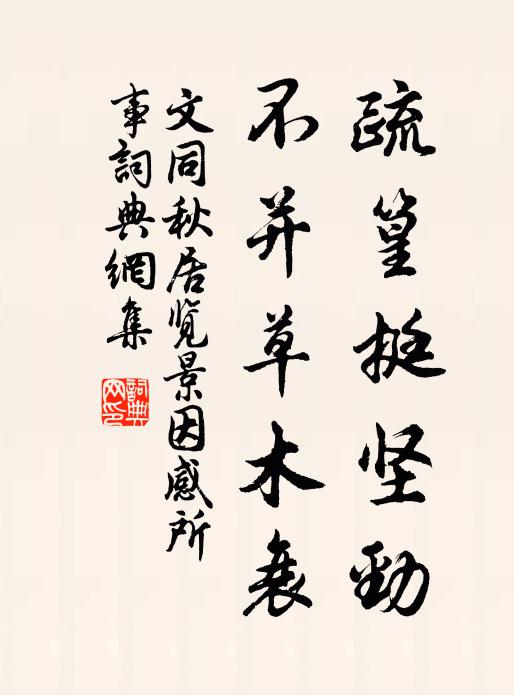 疏篁挺坚劲
不并草木衰
文同秋居览景因感所
事詞典網集
詞典
网印